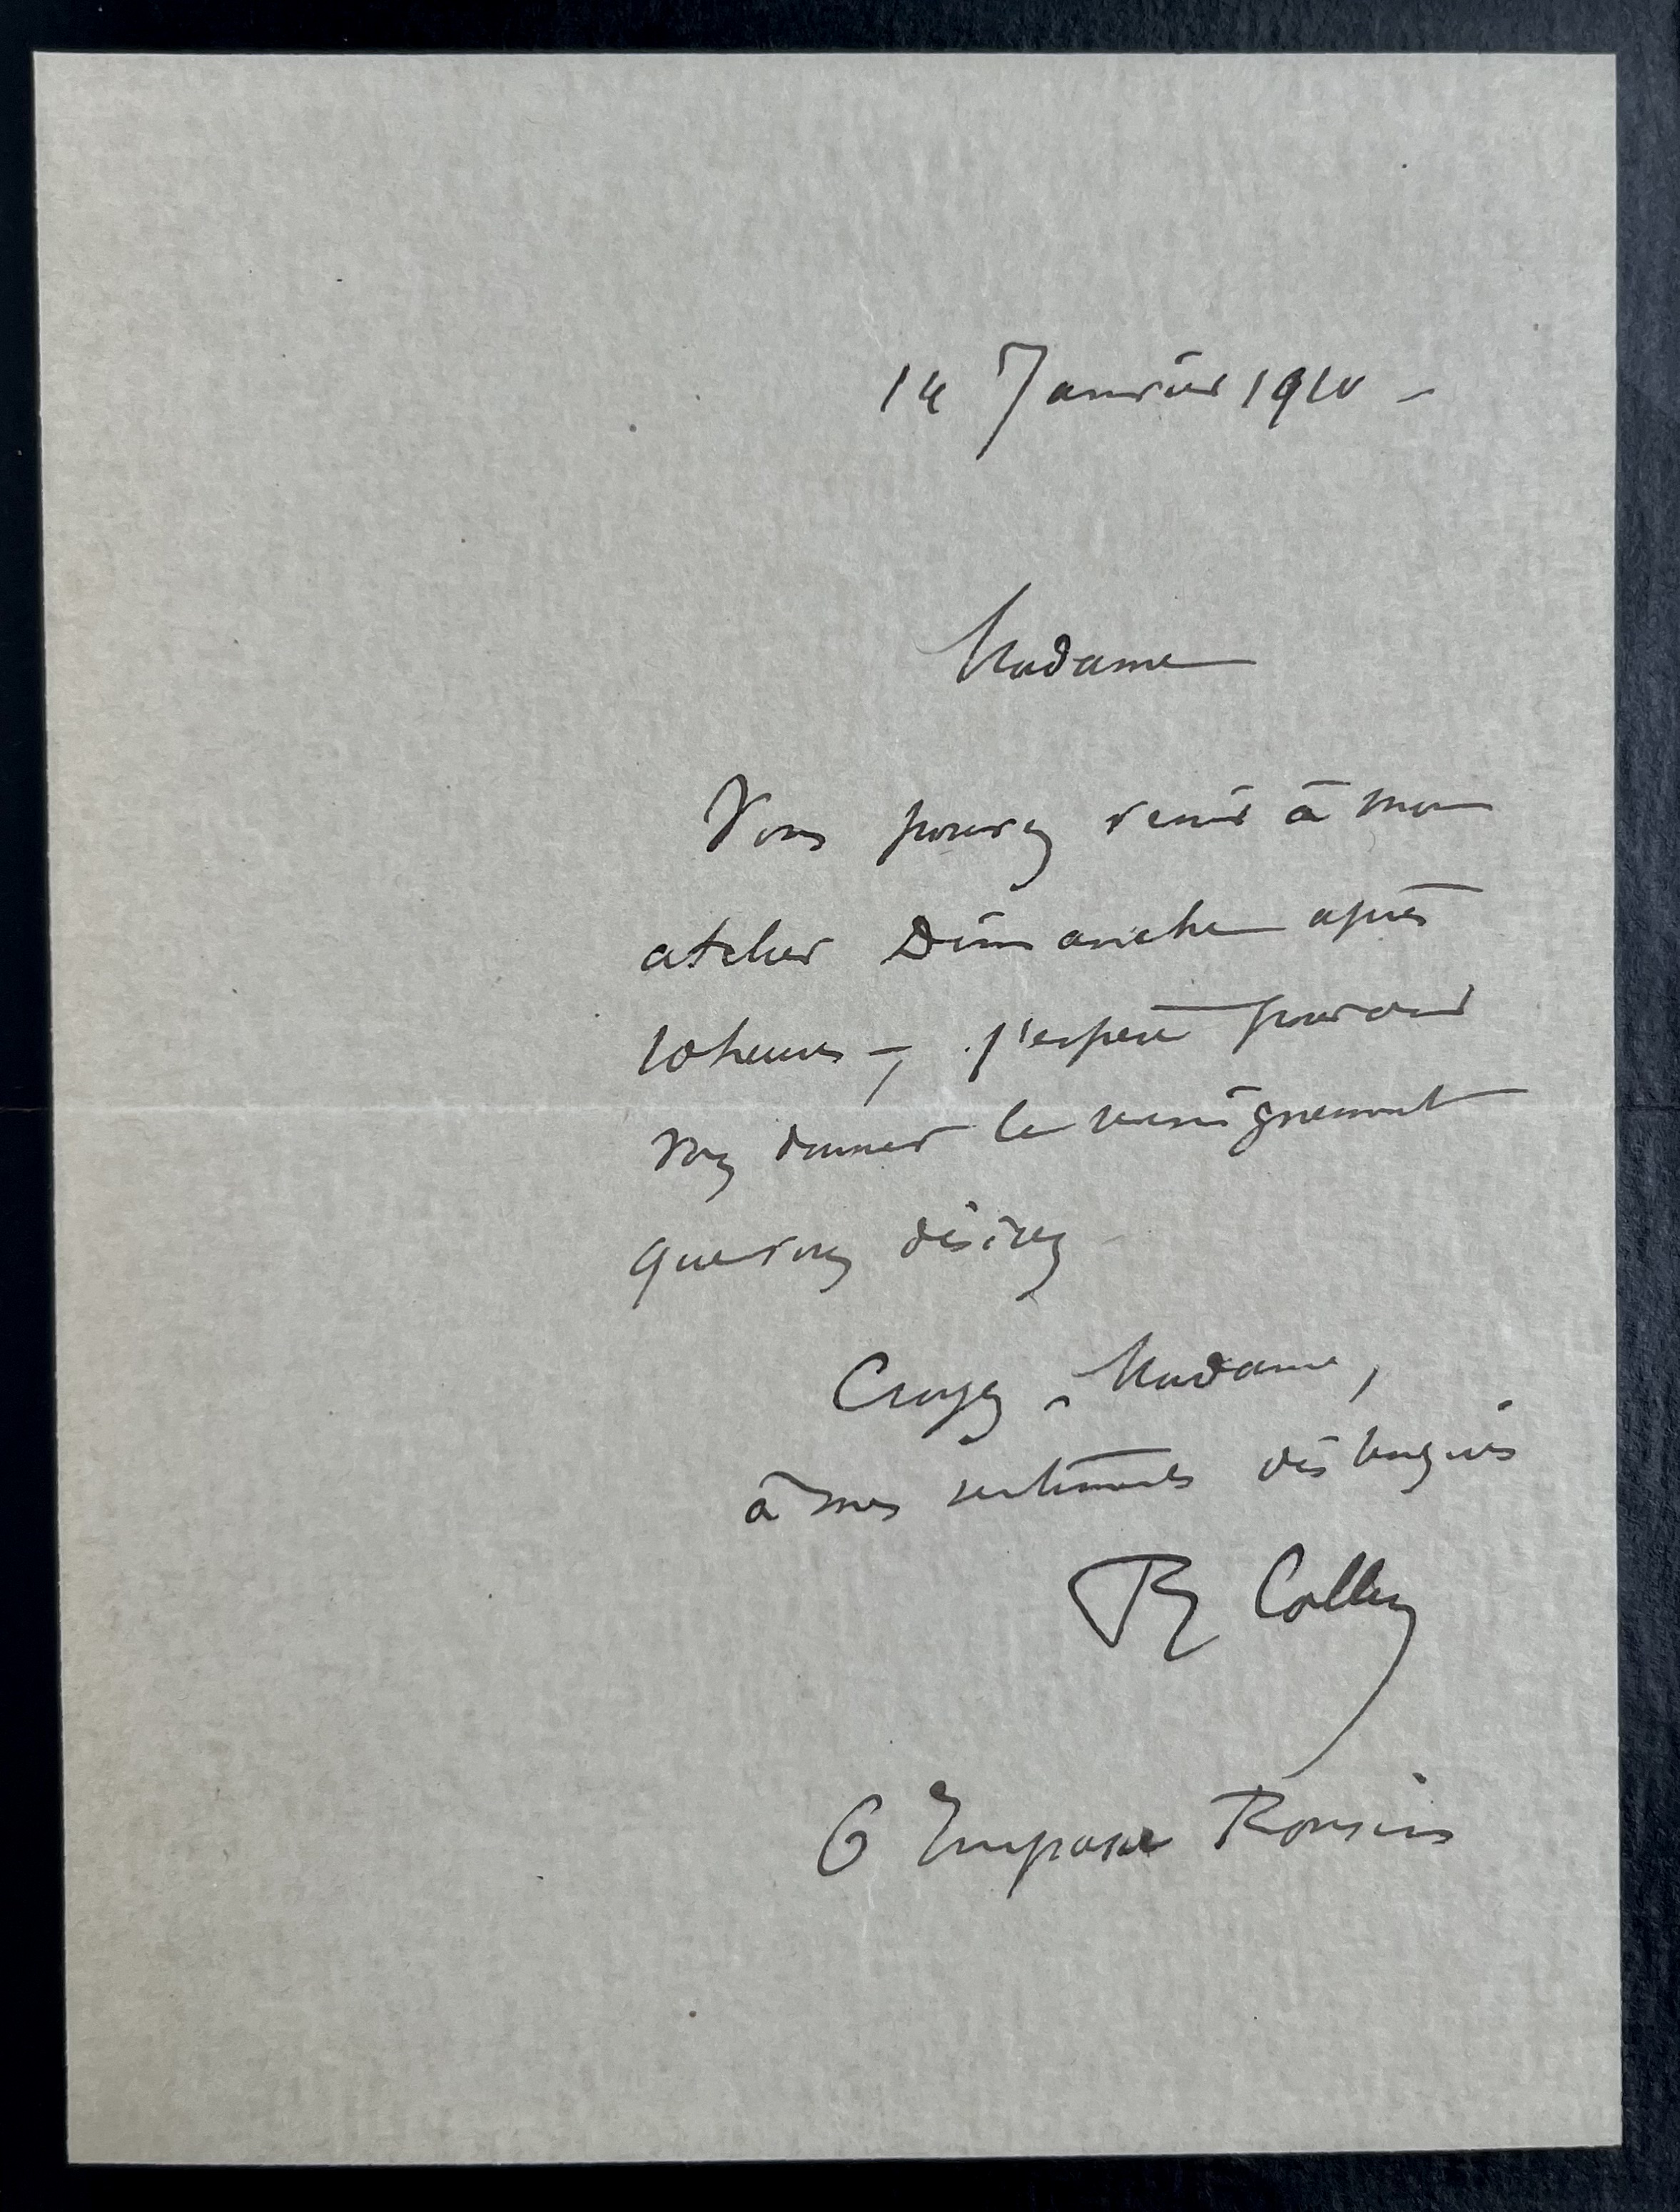 14 Janvier 1910 -
Madame
Vous pouvez venir à mon
atelier Dimanche après
10 heures -, j'espère pouvoir
vous donner le renseignement
que vous désirez
Croyez, Madame,
à mes sentiments distingués
Colley
6 Impasse Ronsin